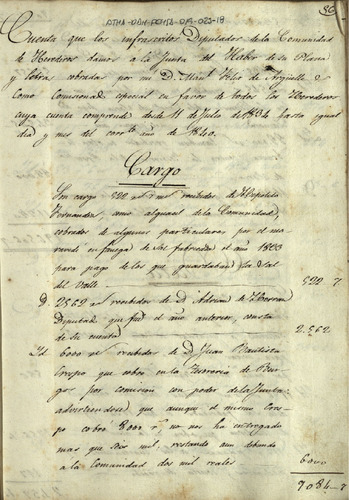 ATHA-DAH-FCHTS-DA-023-18
80
Cuenta que los infrascritos Diputados de la Comunidad
de Herederos damos a la Junta del Haber de su Plana
y Letra cobradas por mi D. Man.l Velez de Arguelle
como Comisionado especial en favor de todos los Herederos
cuya cuenta comprende desde 11 de Julio de 1834 hasta igual
dia y mes del corr.te año de 1840.
Cargo
Son cargo 522 r.s 7 m.s recibidos de Hipolito
Fernandez, como alguacil de la Comunidad,
cobrados de algunos particulares por el ma
ravedi en fanega de Sal fabricada el año 1833
para pago de los que guardaban la Sal
del Valle 522..7
D. 2562 r.s recibidos de D. Adrian de Herran
Diputado que fue el año anterior, consta
de su cuenta 2.562
Id. 6000 r.s recibidos de D. Juan Bautista
Crespo que cobro en la Tesoreria de Bur-
gos por comision con poder de la Junta:
advirtiendose que aunque el mismo Cres-
po cobro 8000 r.s no nos ha entregado
mas que seis mil, restando aun debiendo
a la Comunidad dos mil reales 6000
9084..7